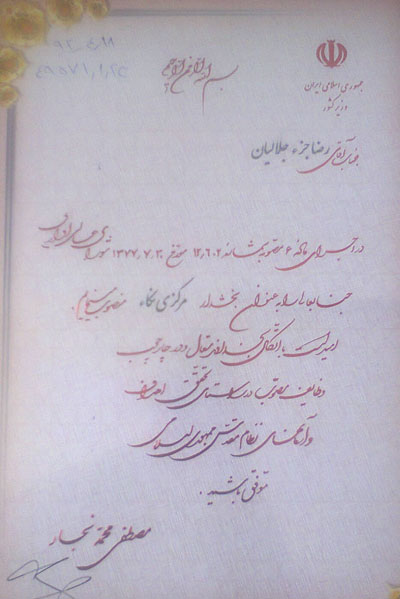 ۹۲،۴،۱۸
بسم الله الرحمن الرحیم
جمهوری اسلامی ایران
وزیر کشور
جناب آقای رضا جزء جلالیان
در اجرای ماده ۶ مصوبه شماره ۱۲،۶۰۲ مورخ ۱۳۷۷،۷،۲۰ شورای عالی اداری
جنابعالی را به عنوان بخشدار مرکزی نکاء منصوب می‌نمایم.
امید است با اتکای به خداوند متعال و در چارچوب
وظایف مصوب در راستای تحقق اهداف
و آرمانهای نظام مقدس جمهوری اسلامی
موفق باشید.
مصطفی محمد نجار